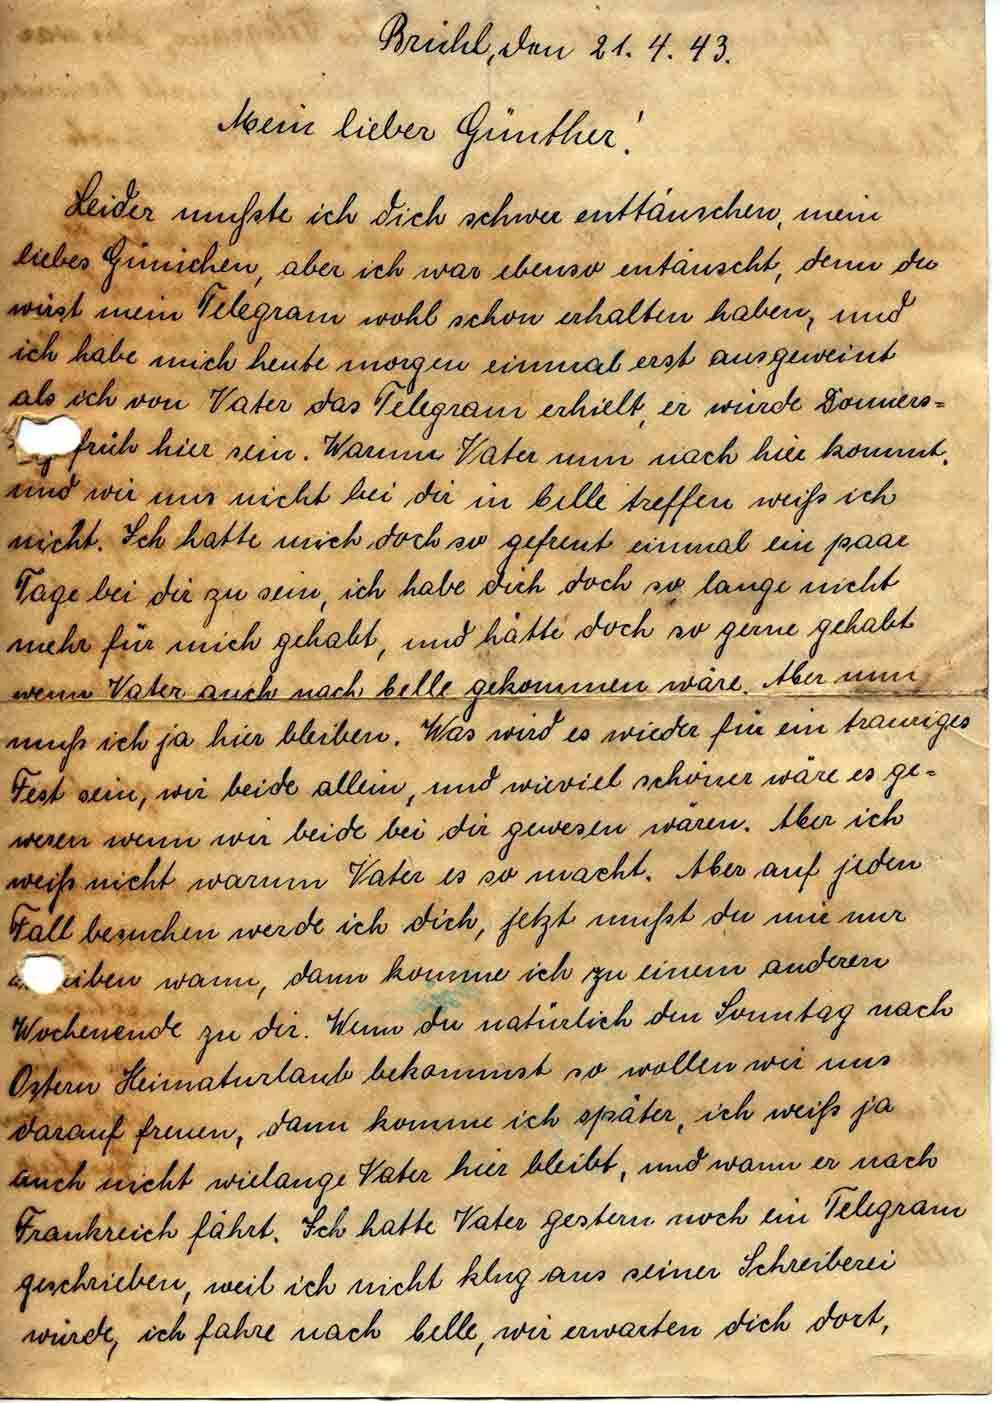 Brühl, den 21. 4. 43.
Mein lieber Günther!
Leider mußte ich dich schwer enttäuschen, mein
liebes Günichen, aber ich war ebenso entäuscht, denn du
wirst mein Telegram wohl schon erhalten haben, und
ich habe mich heute morgen einmal erst ausgeweint
als ich von Vater das Telegram erhielt, er würde Donners-
früh hier sein. Warum Vater nun nach hier kommt,
und wir uns nicht bei dir in Celle treffen weiß ich
nicht. Ich hatte mich doch so gefreut einmal ein paar
Tage bei dir zu sein, ich habe dich doch so lange nicht
mehr für mich gehabt, und hätte doch so gerne gehabt
wenn Vater auch nach Celle gekommen wäre. Aber nun
muß ich ja hier bleiben. Was wird es wieder für ein trauriges
Fest sein, wir beide allein, und wieviel schöner wäre es ge-
wesen wenn wir beide bei dir gewesen wären. Aber ich
weiß nicht warum Vater es so macht. Aber auf jeden
Fall besuchen werde ich dich, jetzt mußt du mir nur
eiben wann, dann komme ich zu einem anderen
Wochenende zu dir. Wenn du natürlich den Sonntag nach
Ostern Heimaturlaub bekommst so wollen wir uns
darauf freuen, dann komme ich später, ich weiß ja
auch nicht wielange Vater hier bleibt, und wann er nach
Frankreich fährt. Ich hatte Vater gestern noch ein Telegram
geschrieben, weil ich nicht klug aus seiner Schreiberei
würde, ich fahre nach Celle, wir erwarten dich dort,